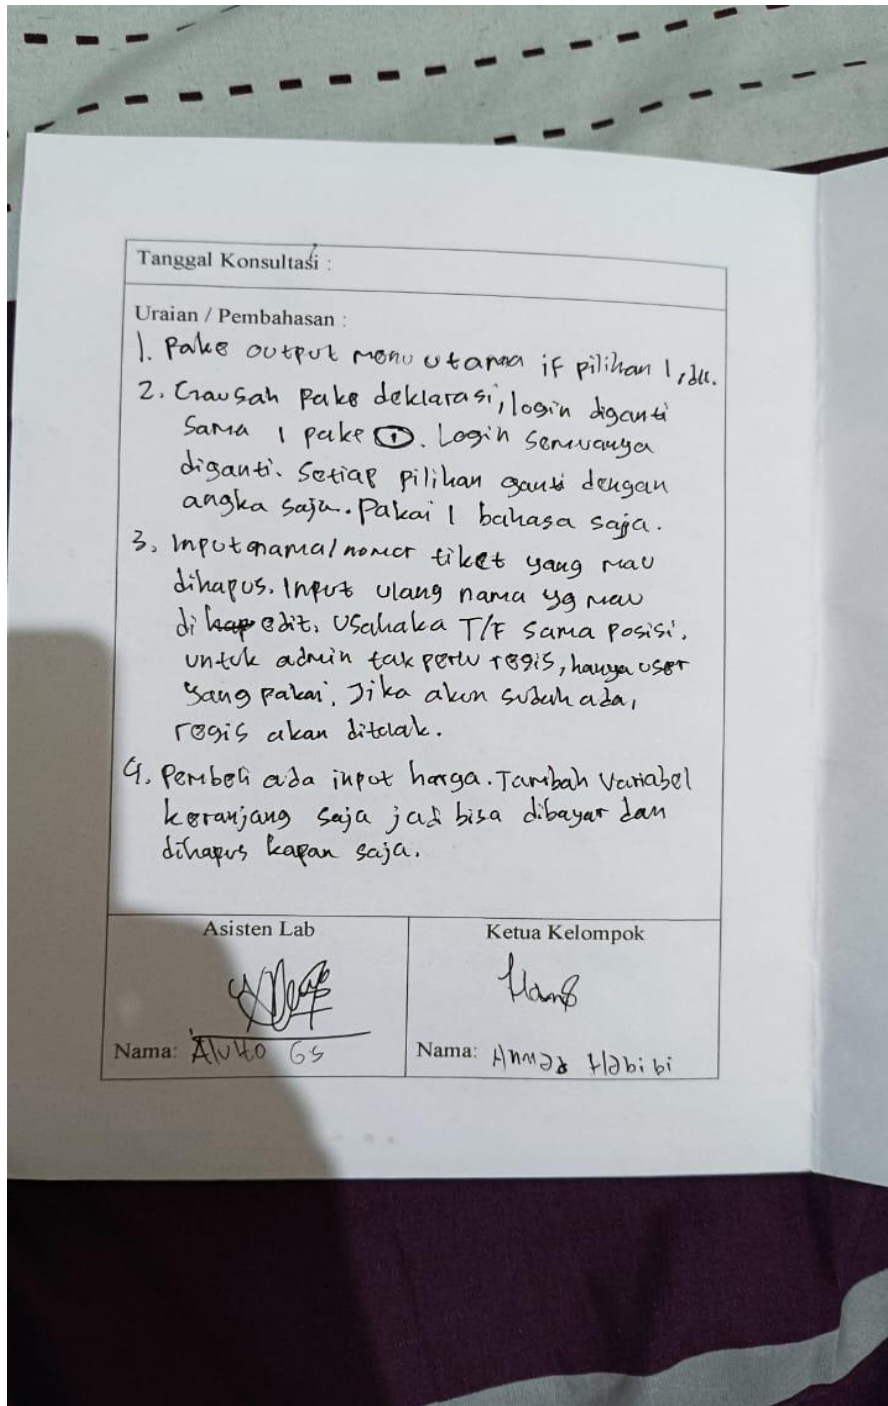 Tanggal Konsultasi :
Uraian / Pembahasan :
1. Pake output menu utama if pilihan 1, dll.
2. Gausah pake deklarasi, login diganti
sama 1 pake ①. Login semuanya
diganti. Setiap pilihan ganti dengan
angka saja. Pakai 1 bahasa saja.
3. Input nama/nomer tiket yang mau
dihapus. Input ulang nama yg mau
di hap edit. Usahaka T/F sama posisi.
untuk admin tak perlu regis, hanya user
yang pakai. Jika akun sudah ada,
regis akan ditolak.
4. Pembeli ada input harga. Tambah Variabel
keranjang saja jadi bisa dibayar dan
dihapus kapan saja.
Asisten Lab
Ketua Kelompok
Nama: GS
Nama: Ahmad Habibi